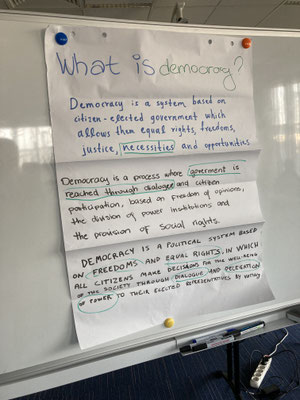 What is democracy?
Democracy is a system based on
citizen-elected government which
allows them equal rights, freedoms,
justice, necessities and opportunities.
Democracy is a process where government is
reached through dialogue and citizen
participation, based on freedom of opinions,
the division of power institutions and
the provision of social rights.
DEMOCRACY IS A POLITICAL SYSTEM BASED
ON FREEDOMS AND EQUAL RIGHTS, IN WHICH
ALL CITIZENS MAKE DECISIONS FOR THE WELL-BEING
OF THE SOCIETY THROUGH DIALOGUE AND DELEGATION
OF POWER TO THEIR ELECTED REPRESENTATIVES BY VOTING